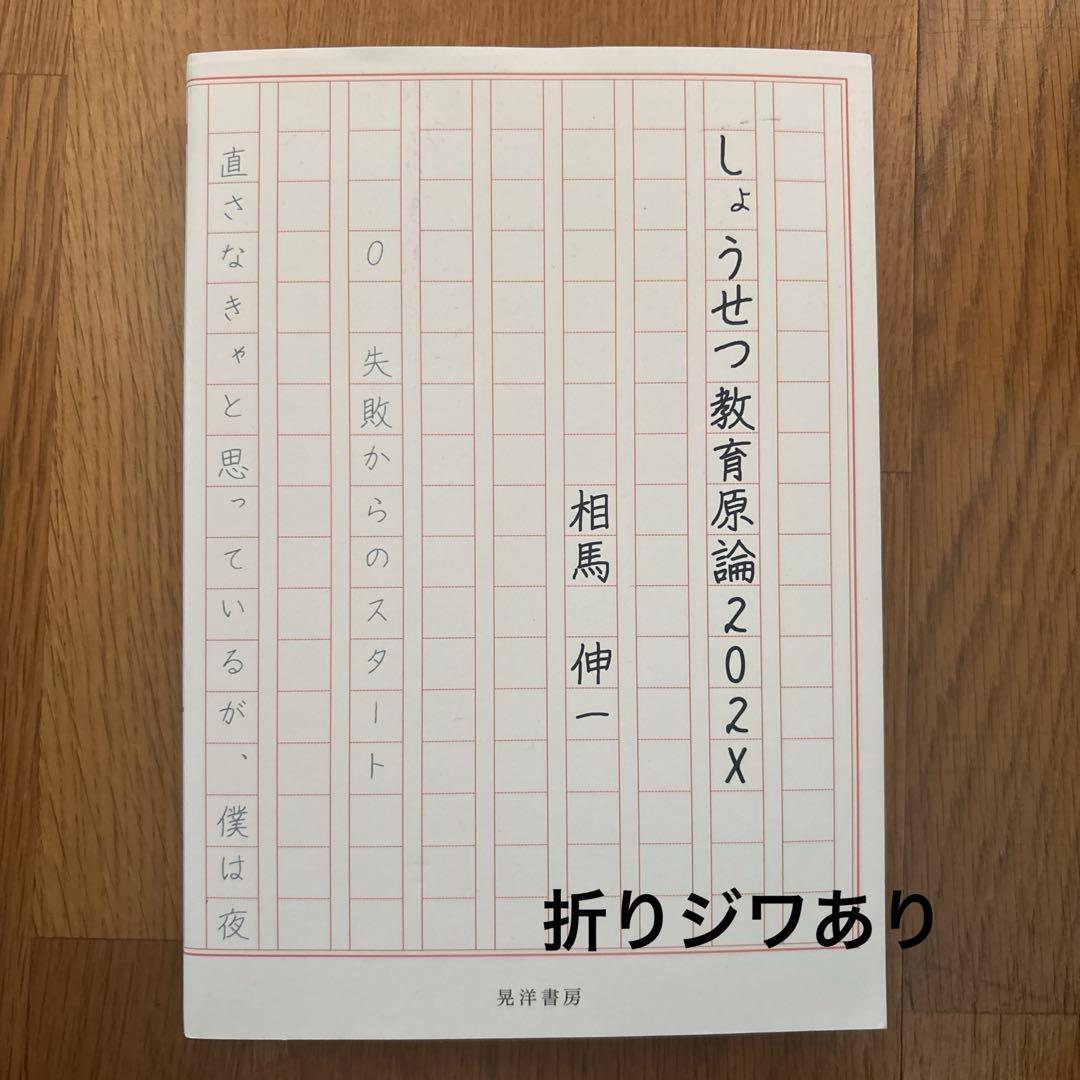 しょうせつ教育原論202X
相馬　伸一
0　失敗からのスタート
直さなきゃと思っているが、僕は夜
折りジワあり
晃洋書房